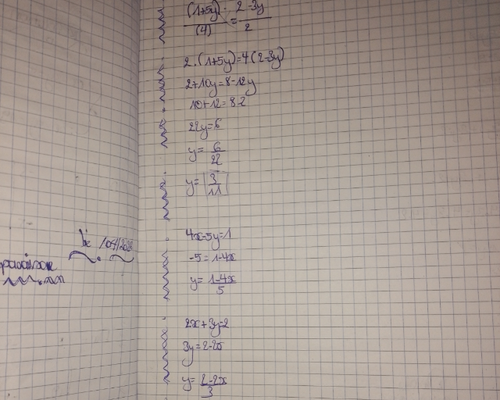 (1+5y) / (4) = 2-3y / 2
2.(1+5y)=4.(2-3y)
2+10y=8-12y
10+12=8-2
22y=6
y= 6/22
y= 3/11
4x-5y=1
-5=1-4x
y= 1-4x/5
2x+3y=2
3y=2-2x
y= 2-2x/3